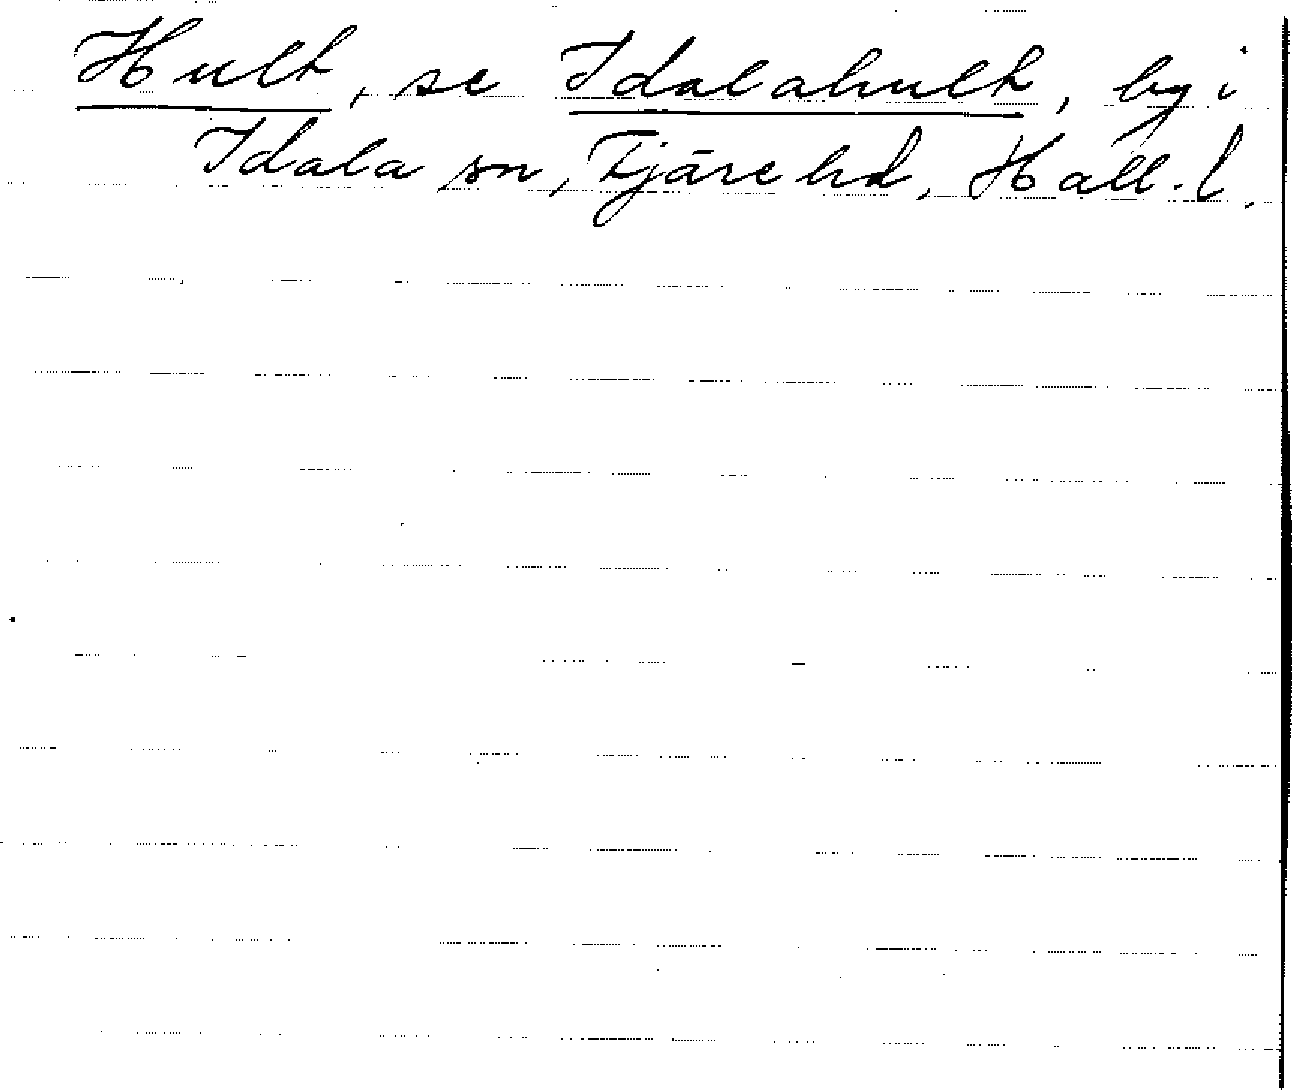 Hult, se Idalahult, by i
Idala sn, Fjäre hd, Hall. l.